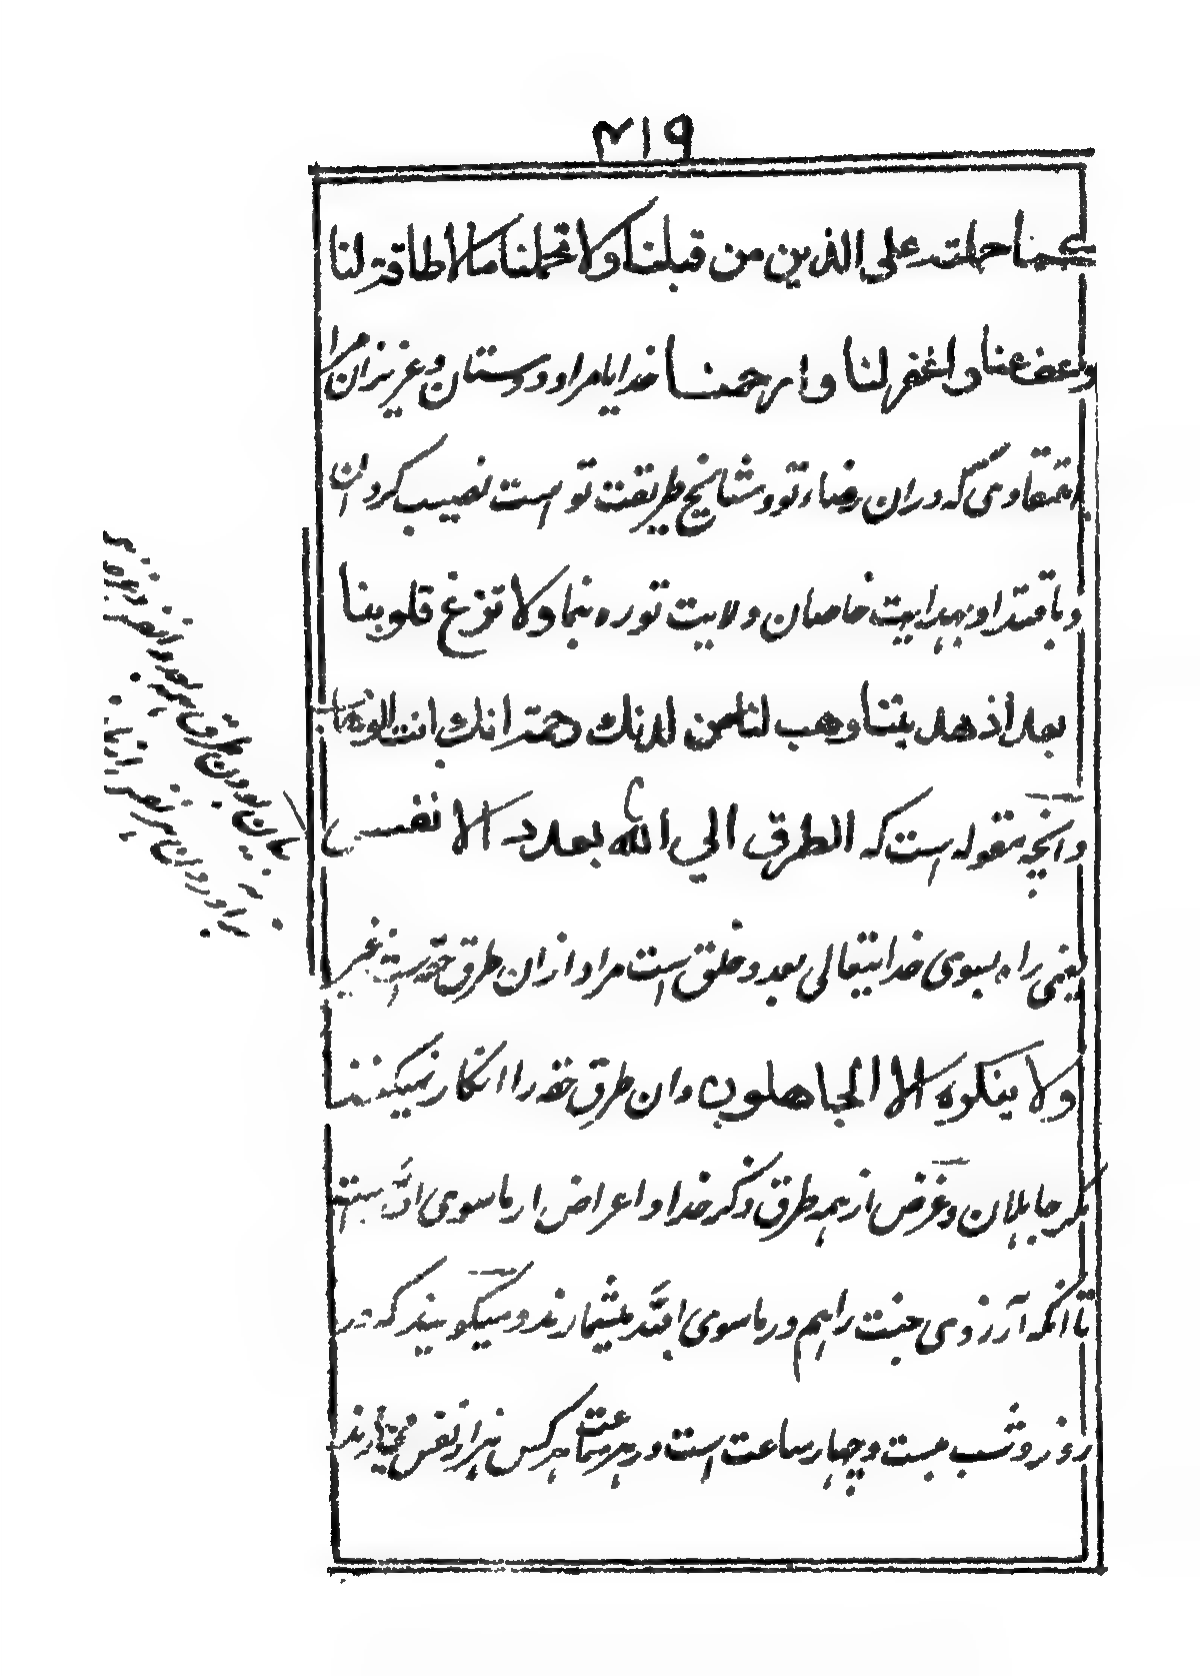 ۴۱۹
كما حملته على الذين من قبلنا ولا تحملنا مالا طاقة لنا
واعف عنا واغفر لنا وارحمنا خدایا مرا و دوستان و عزیزان مرا
اعتقادمی که دران رضاء تو و مشایخ طریقت تو است نصیب کردان
و باقتدا و بهدایت خاصان ولایت تو ره نما ولا تزغ قلوبنا
بعد اذ هديتنا وهب لنا من لدنك رحمة انك انت الوهاب
وانچه مقوله است که الطرق الي الله بعدد الانفس
یعنی راه بسوی خدایتعالی بعدد خلق است مراد ازان طرق حقه است غیر
ولا ينكره الا الجاهلون وان طرق حقه را انکار نمیکنند
مکر جاهلان و غرض از همه طرق ذکر خدا و اعراض از ماسوی الله است
تا آنکه آرزوی جنت را هم در ماسوی الله میشمارند و میکویند که در
روز و شب بیست و چهار ساعت است و در هر ساعت هر کس هزار نفس می آرند